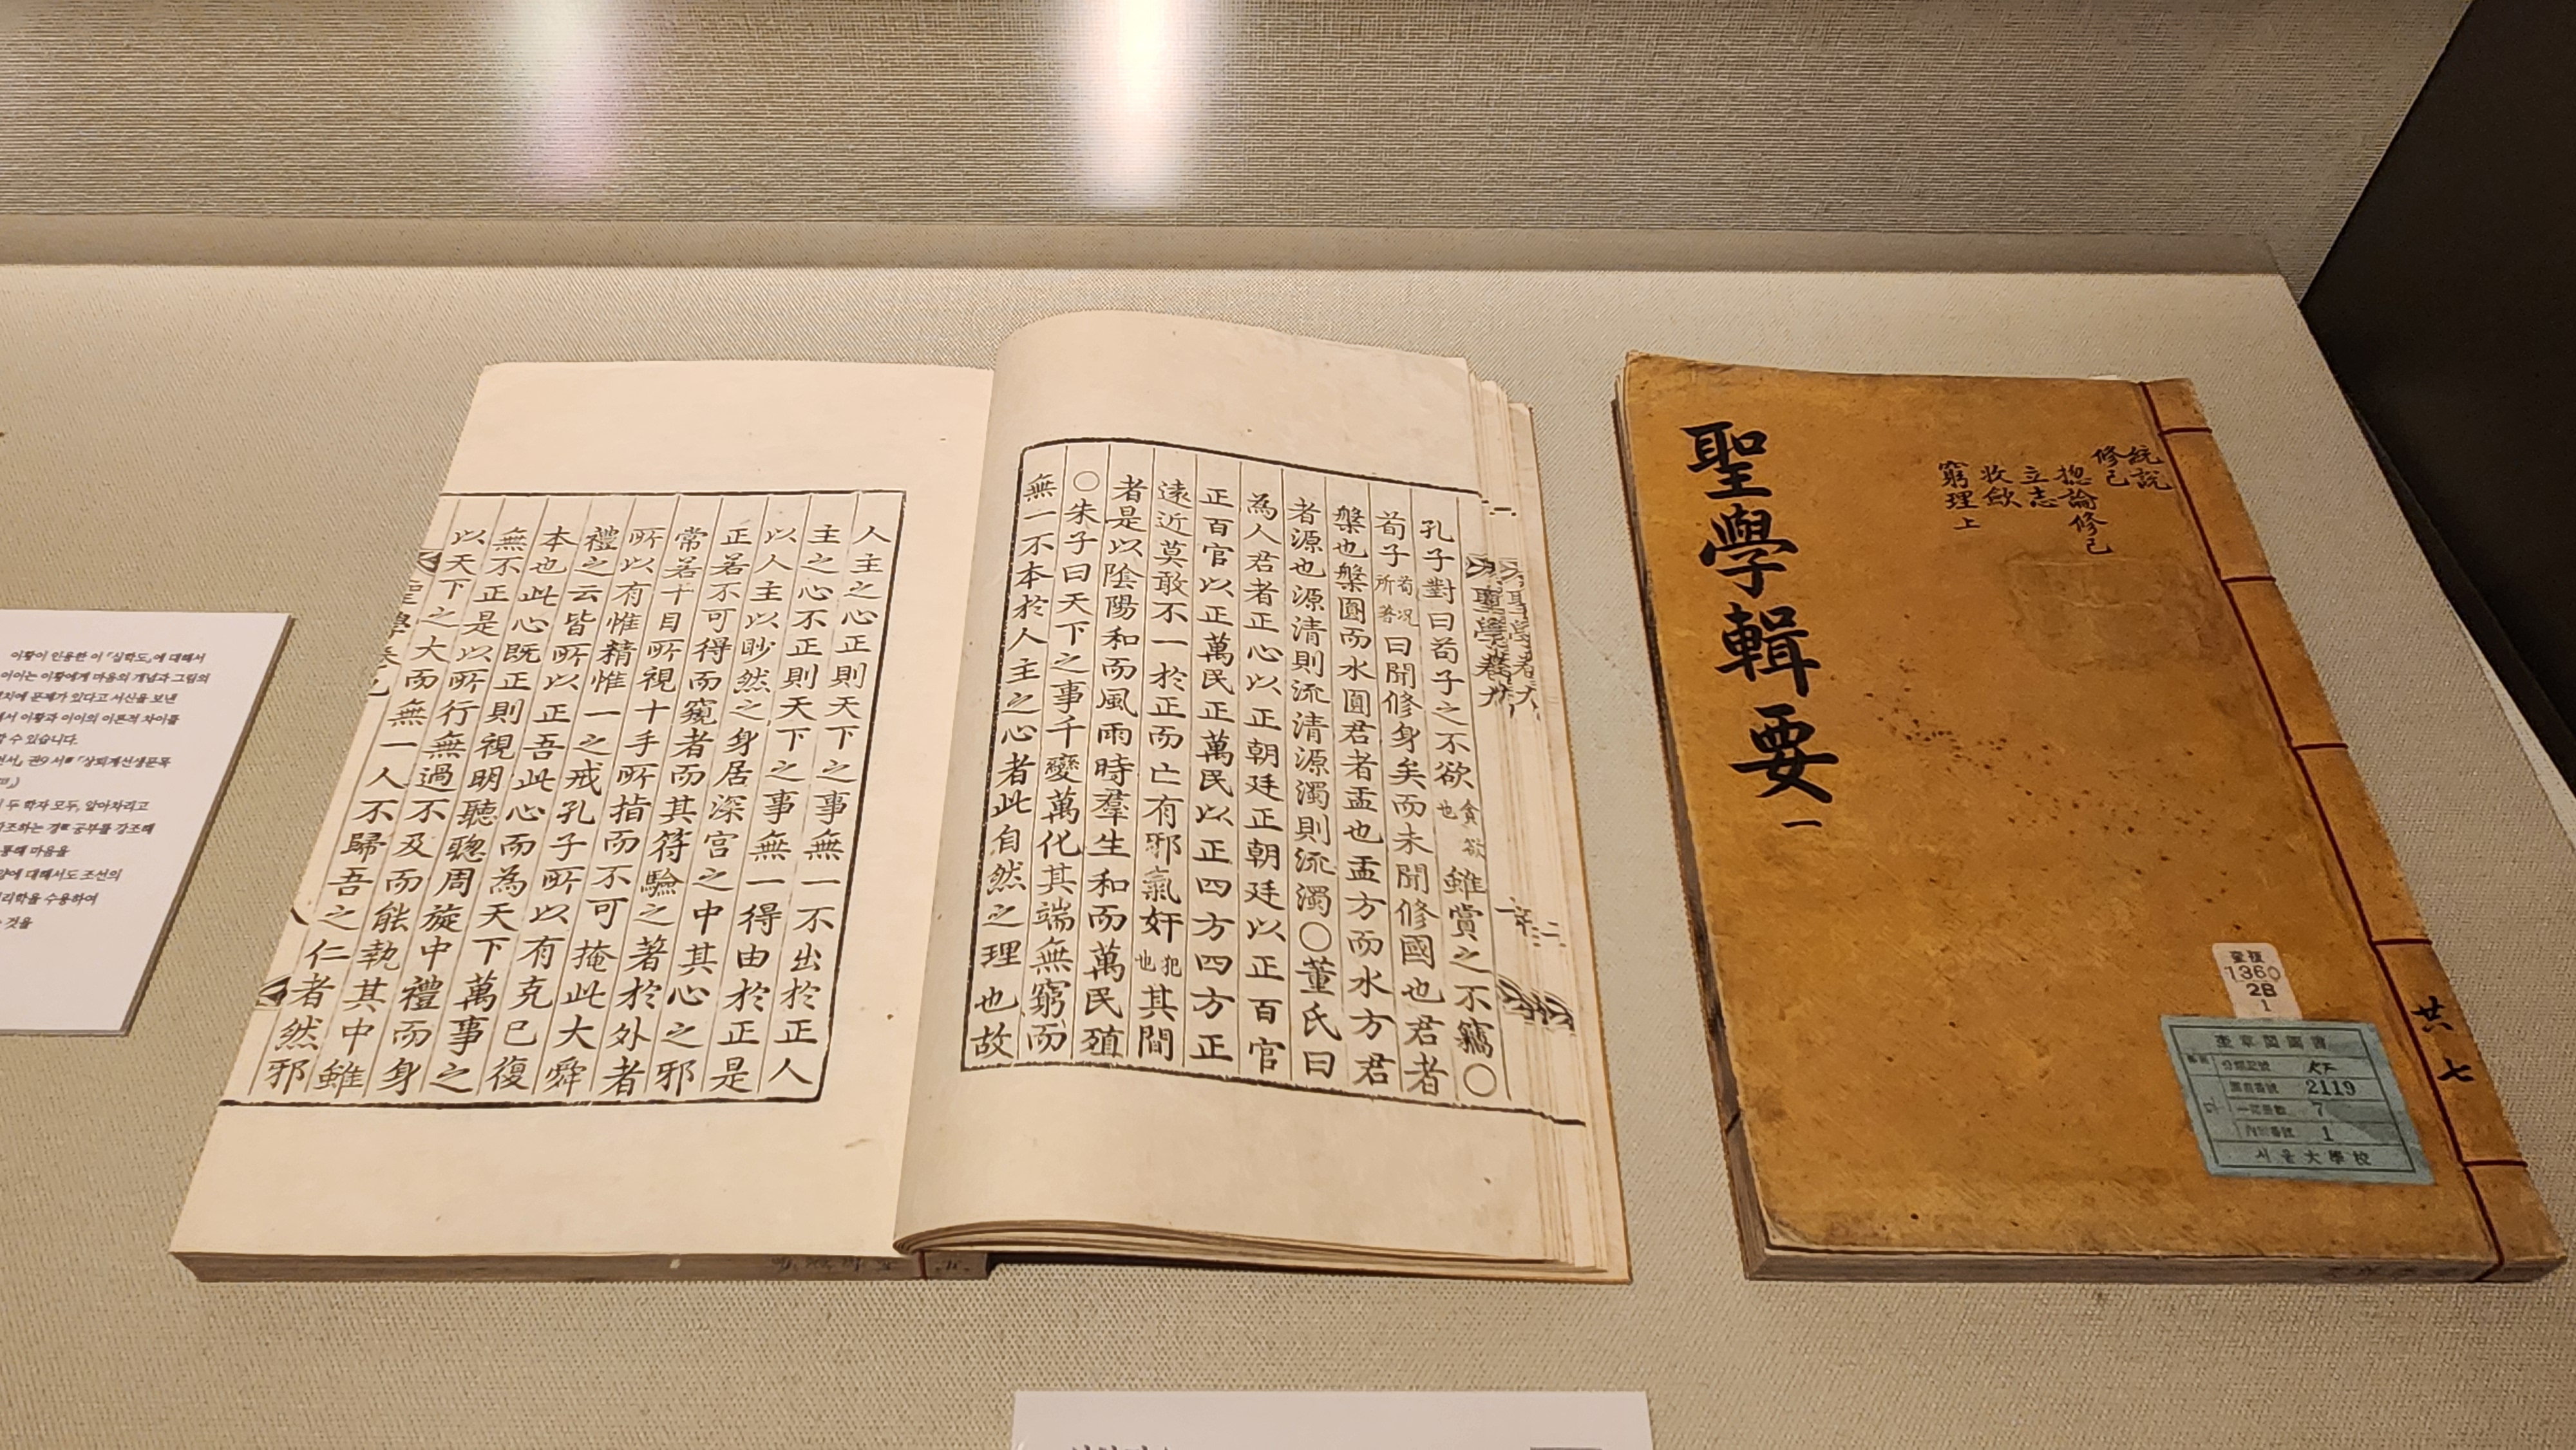 孔子對曰苟子之不欲貪欲也雖賞之不竊○
荀子荀况所著曰聞修身矣而未聞修國也君者
槃也槃圓而水圓君者盂也盂方而水方君
者源也源清則流清源濁則流濁○董氏曰
為人君者正心以正朝廷正朝廷以正百官
正百官以正萬民正萬民以正四方四方正
遠近莫敢不一於正而亡有邪氣奸犯也其間
者是以陰陽和而風雨時羣生和而萬民殖
○朱子曰天下之事千變萬化其端無窮而
無一不本於人主之心者此自然之理也故
人主之心正則天下之事無一不出於正人
主之心不正則天下之事無一得由於正是
以人主以眇然之身居深宮之中其心之邪
正若不可得而窺者而其符驗之著於外者
常若十目所視十手所指而不可掩此大舜
所以有惟精惟一之戒孔子所以有克已復
禮之云皆所以正吾此心而為天下萬事之
本也此心既正則視明聽聰周旋中禮而身
無不正是以所行無過不及而能執其中雖
以天下之大而無一人不歸吾之仁者然邪
聖學輯要 一
統說
修己
摠論修己
立志
收斂
窮理上
共七
奎複
1360
2B
1
奎章閣圖書
KF
圖書番號 2119
7
1
서울大學校
이황이 인용한 이 「심학도」에 대해서
이이는 이황에게 마음의 개념과 그림의
문제가 있다고 서신을 보낸
이황과 이이의 이론적 차이를
수 있습니다.
두 학자 모두, 알아차리고
공부를 강조해
마음을
대해서도 조선의
수용하여
것을